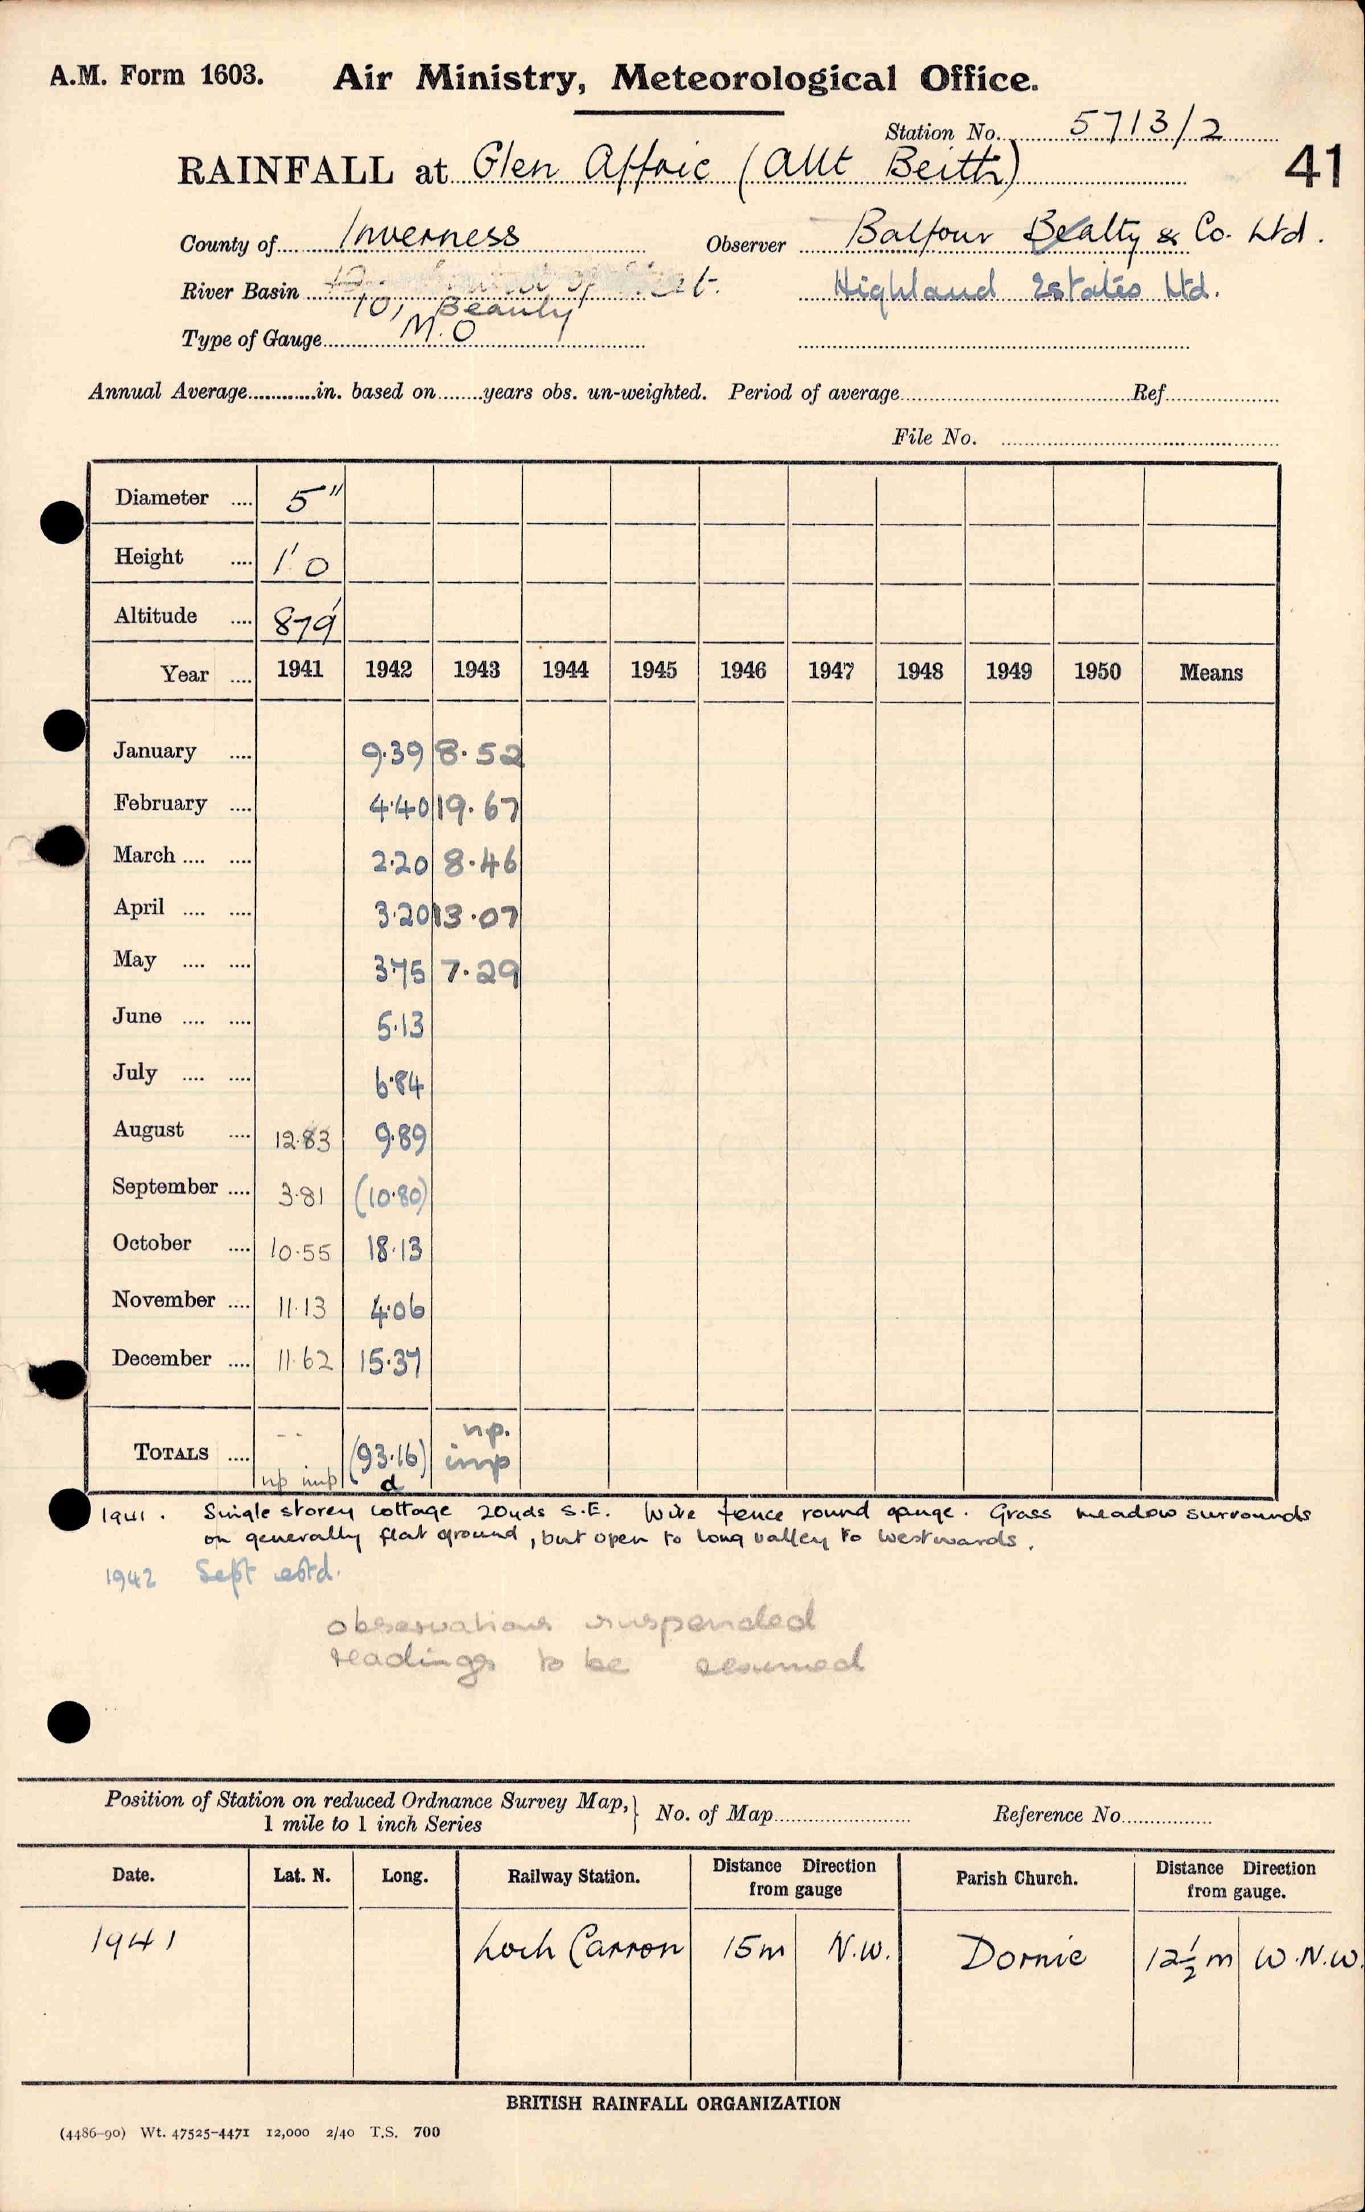 A.M. Form 1603. Air Ministry, Meteorological Office.
Station No. 5713/2
41
RAINFALL at Glen Affric (Allt Beith)
County of Inverness Observer Balfour Beatty & Co. Ltd.
River Basin 10, Beauly Highland Estates Ltd.
Type of Gauge M.O
Annual Average in. based on years obs. un-weighted. Period of average Ref
File No.
Diameter 5"
Height 1' 0
Altitude 879'
Year 1941 1942 1943 1944 1945 1946 1947 1948 1949 1950 Means
January 9.39 8.52
February 4.40 19.67
March 2.20 8.46
April 3.20 13.07
May 3.75 7.29
June 5.13
July 6.84
August 12.83 9.89
September 3.81 (10.80)
October 10.55 18.13
November 11.13 4.06
December 11.62 15.37
TOTALS -- np imp (93.16) d np. imp
1941. Single storey cottage 20yds S.E. Wire fence round gauge. Grass meadow surrounds
on generally flat ground, but open to long valley to westwards.
1942 Sept estd.
observations suspended
readings to be resumed
Position of Station on reduced Ordnance Survey Map, 1 mile to 1 inch Series } No. of Map Reference No.
Date. Lat. N. Long. Railway Station. Distance Direction from gauge Parish Church. Distance Direction from gauge.
1941 Loch Carron 15m N.W. Dornie 12½m W.N.W.
BRITISH RAINFALL ORGANIZATION
(4486-90) Wt. 47525-4471 12,000 2/40 T.S. 700